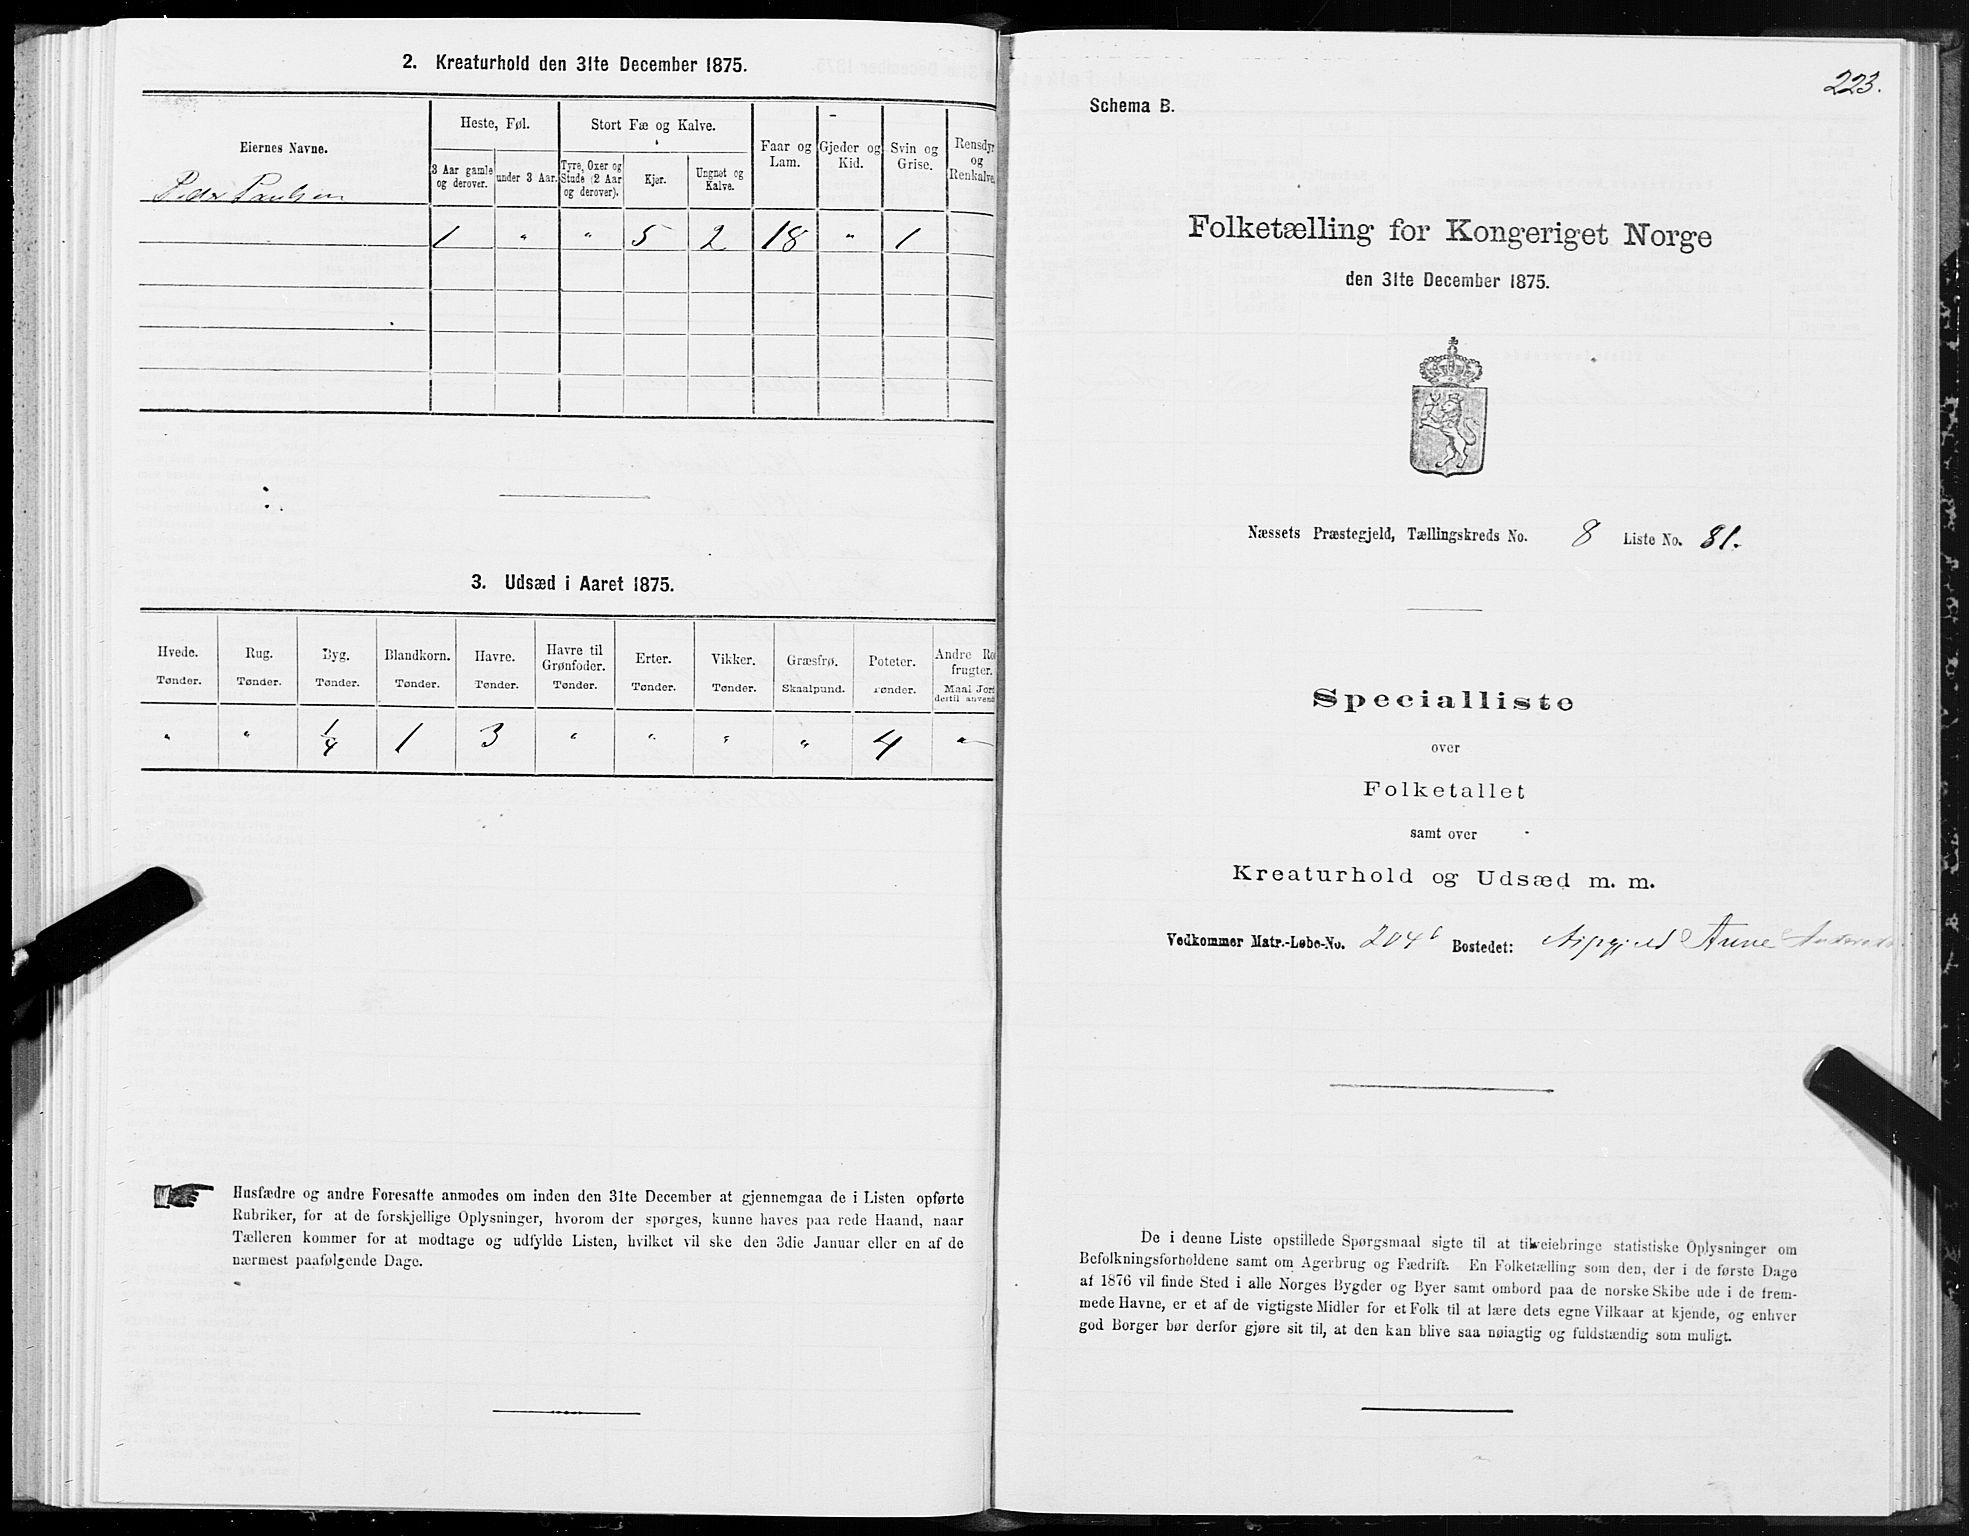 2. Kreaturhold den 31te December 1875.
Eiernes Navne.
Heste, Føl.
Stort Fæ og Kalve.
3 Aar gamle og derover.
under 3 Aar.
Tyre, Oxer og Stude (2 Aar og derover).
Kjør.
Ungnøt og Kalve.
Faar og Lam.
Gjeder og Kid.
Svin og Grise.
Rensdyr og Renkalve.
Peder Paulsen
1 " " 5 2 18 " 1
3. Udsæd i Aaret 1875.
Hvede. Rug. Byg. Blandkorn. Havre. Havre til Grønfoder. Erter. Vikker. Græsfrø. Poteter. Andre Ro frugter.
Tønder. Tønder. Tønder. Tønder. Tønder. Tønder. Tønder. Tønder. Skaalpund. Tønder. Maal Jord dertil anvend
" " 1/4 1 3 " " " " 4 "
Husfædre og andre Foresatte anmodes om inden den 31te December at gjennemgaa de i Listen opførte
Rubriker, for at de forskjellige Oplysninger, hvorom der spørges, kunne haves paa rede Haand, naar
Tælleren kommer for at modtage og udfylde Listen, hvilket vil ske den 3die Januar eller en af de
nærmest paafølgende Dage.
223.
Schema B.
Folketælling for Kongeriget Norge
den 31te December 1875.
Næssets Præstegjeld, Tællingskreds No. 8 Liste No. 81.
Specialliste
over
Folketallet
samt over
Kreaturhold og Udsæd m. m.
Vedkommer Matr.-Løbe-No. 204 b Bostedet: Arne
De i denne Liste opstillede Spørgsmaal sigte til at tilveiebringe statistiske Oplysninger om
Befolkningsforholdene samt om Agerbrug og Fædrift. En Folketælling som den, der i de første Dage
af 1876 vil finde Sted i alle Norges Bygder og Byer samt ombord paa de norske Skibe ude i de frem-
mede Havne, er et af de vigtigste Midler for et Folk til at lære dets egne Vilkaar at kjende, og enhver
god Borger bør derfor gjøre sit til, at den kan blive saa nøiagtig og fuldstændig som muligt.